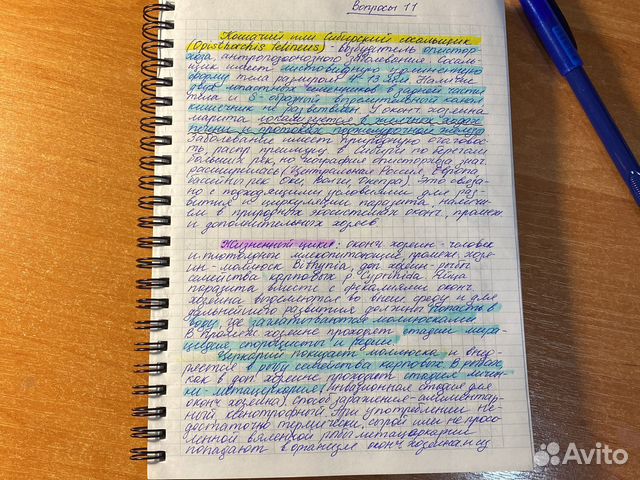 Вопросы 11
Кошачий или Сибирский сосальщик
(Opisthorchis felineus) - возбудитель описторхоза, антропозоонозного заболевания. Сосальщик имеет листовидную удлинённую
форму тела размером
двух лопастных семенников в задней части
тела и S-образный
кишечник не разветвлён. У оконч. хозяина
марита локализуется в желчных ходах
печени и протоках поджелудочной железы
Заболевание имеет природную очаговость, распр. преимущ. в Сибири по берегам
больших рек, но география описторхоза знач.
расширилась (Центральная Россия, Европа,
бассейны рек Оки, Волги, Днепра). Это связано с подходящими условиями для развития и циркуляции паразита, наличием в природных экосистемах оконч., промеж
и дополнительных хозяев.
Жизненный цикл: оконч хозяин - человек
и плотоядные млекопитающие, промеж. хозяин - моллюск Bithynia, доп. хозяин - рыбы
семейства карповых р. Яйца
паразита вместе с фекалиями оконч.
хозяина выделяются во внеш. среду и для
дальнейшего развития должны попасть в
воду, где заглатываются моллюсками
В промеж. хозяине проходят стадии мирацидия, спороцисты и редии.
Церкарий покидает моллюска и внедряется в рыбу семейства карповых. В рыбах,
как в доп. хозяине проходят стадия личинки - метацеркария (инвазионная стадия для
оконч хозяина). Способ заражения - алиментарный, ксенотрофный. При употреблении недостаточно термически, сырой или не просоленной, вяленной рыбы метацеркарии
попадают в организм оконч хозяина и из
Avito